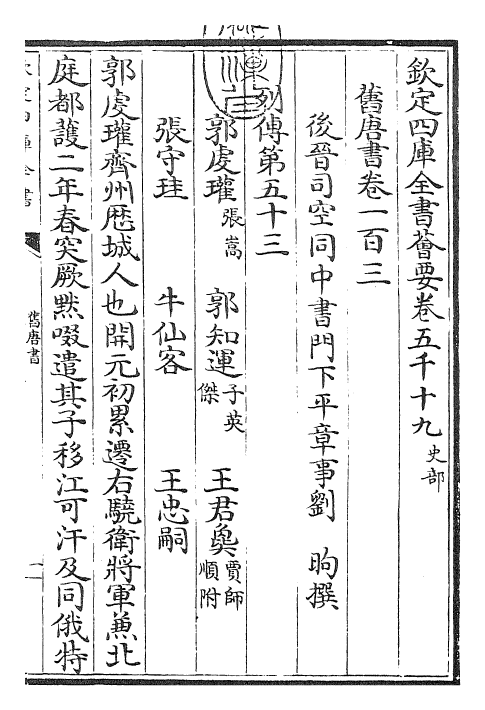 欽定四庫全書薈要卷五千十九 史部
舊唐書卷一百三
後晉司空同中書門下平章事劉 昫撰
列傳第五十三
郭虔瓘 張嵩 郭知運 子英傑 王君㚟 賈師順附
張守珪 牛仙客 王忠嗣
郭虔瓘齊州歴城人也開元初累遷右驍衛將軍兼北
庭都䕶二年春突厥黙啜遣其子移江可汗及同俄特
舊唐書
一